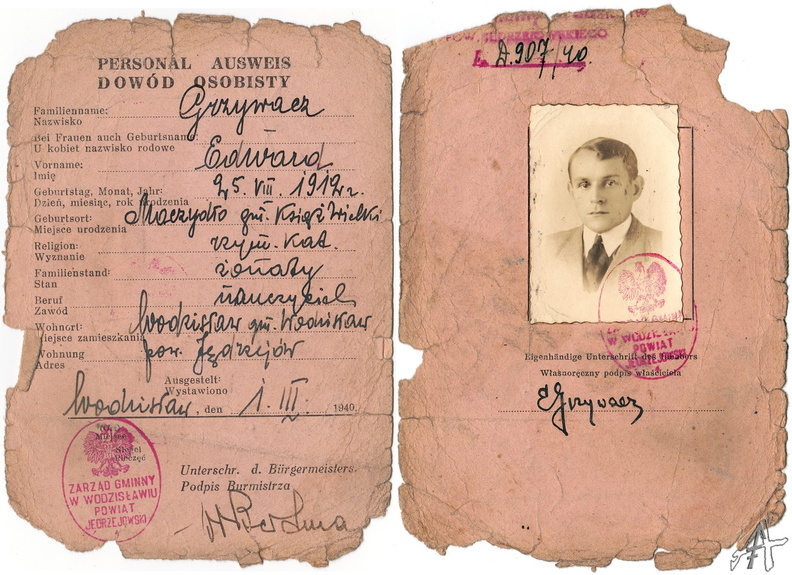 PERSONAL AUSWEIS
DOWÓD OSOBISTY
Familienname: Grzywacz
Nazwisko
Bei Frauen auch Geburtsname:
U kobiet nazwisko rodowe
Vorname: Edward
Imię
Geburtstag, Monat, Jahr: 25. VIII. 1912 r.
Dzień, miesiąc, rok urodzenia
Geburtsort: Moczydło gm. Książ Wielki
Miejsce urodzenia
Religion: rzym. kat.
Wyznanie
Familienstand: żonaty
Stan
Beruf nauczyciel
Zawód
Wohnort: Wodzisław gm. Wodzisław
Miejsce zamieszkania
Wohnung pow. Jędrzejów
Adres
Ausgestelt:
Wystawiono
Wodzisław, den 1. III. 1940.
(Ort)
Miejsce
Stempel
Pieczęć
ZARZĄD GMINNY
W WODZISŁAWIU
POWIAT
JĘDRZEJOWSKI
Unterschr. d. Bürgermeisters.
Podpis Burmistrza
POW. JĘDRZEJOWSKIEGO
L. D.907/40.
W WODZISŁAWIU
POWIAT
JĘDRZEJOWSKI
Eigenhändige Unterschrift des Inhabers
Własnoręczny podpis właściciela
EGrzywacz